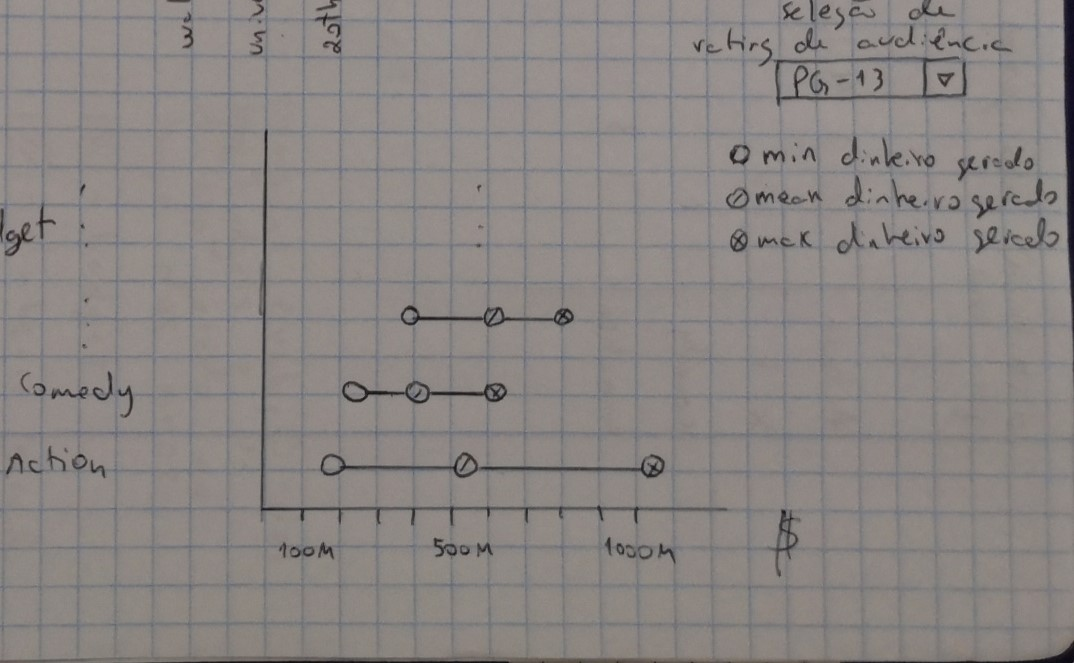 seleção de
rating de audiência
PG-13
min dinheiro gerado
mean dinheiro gerado
max dinheiro gerado
Comedy
Action
100M 500M 1000M $